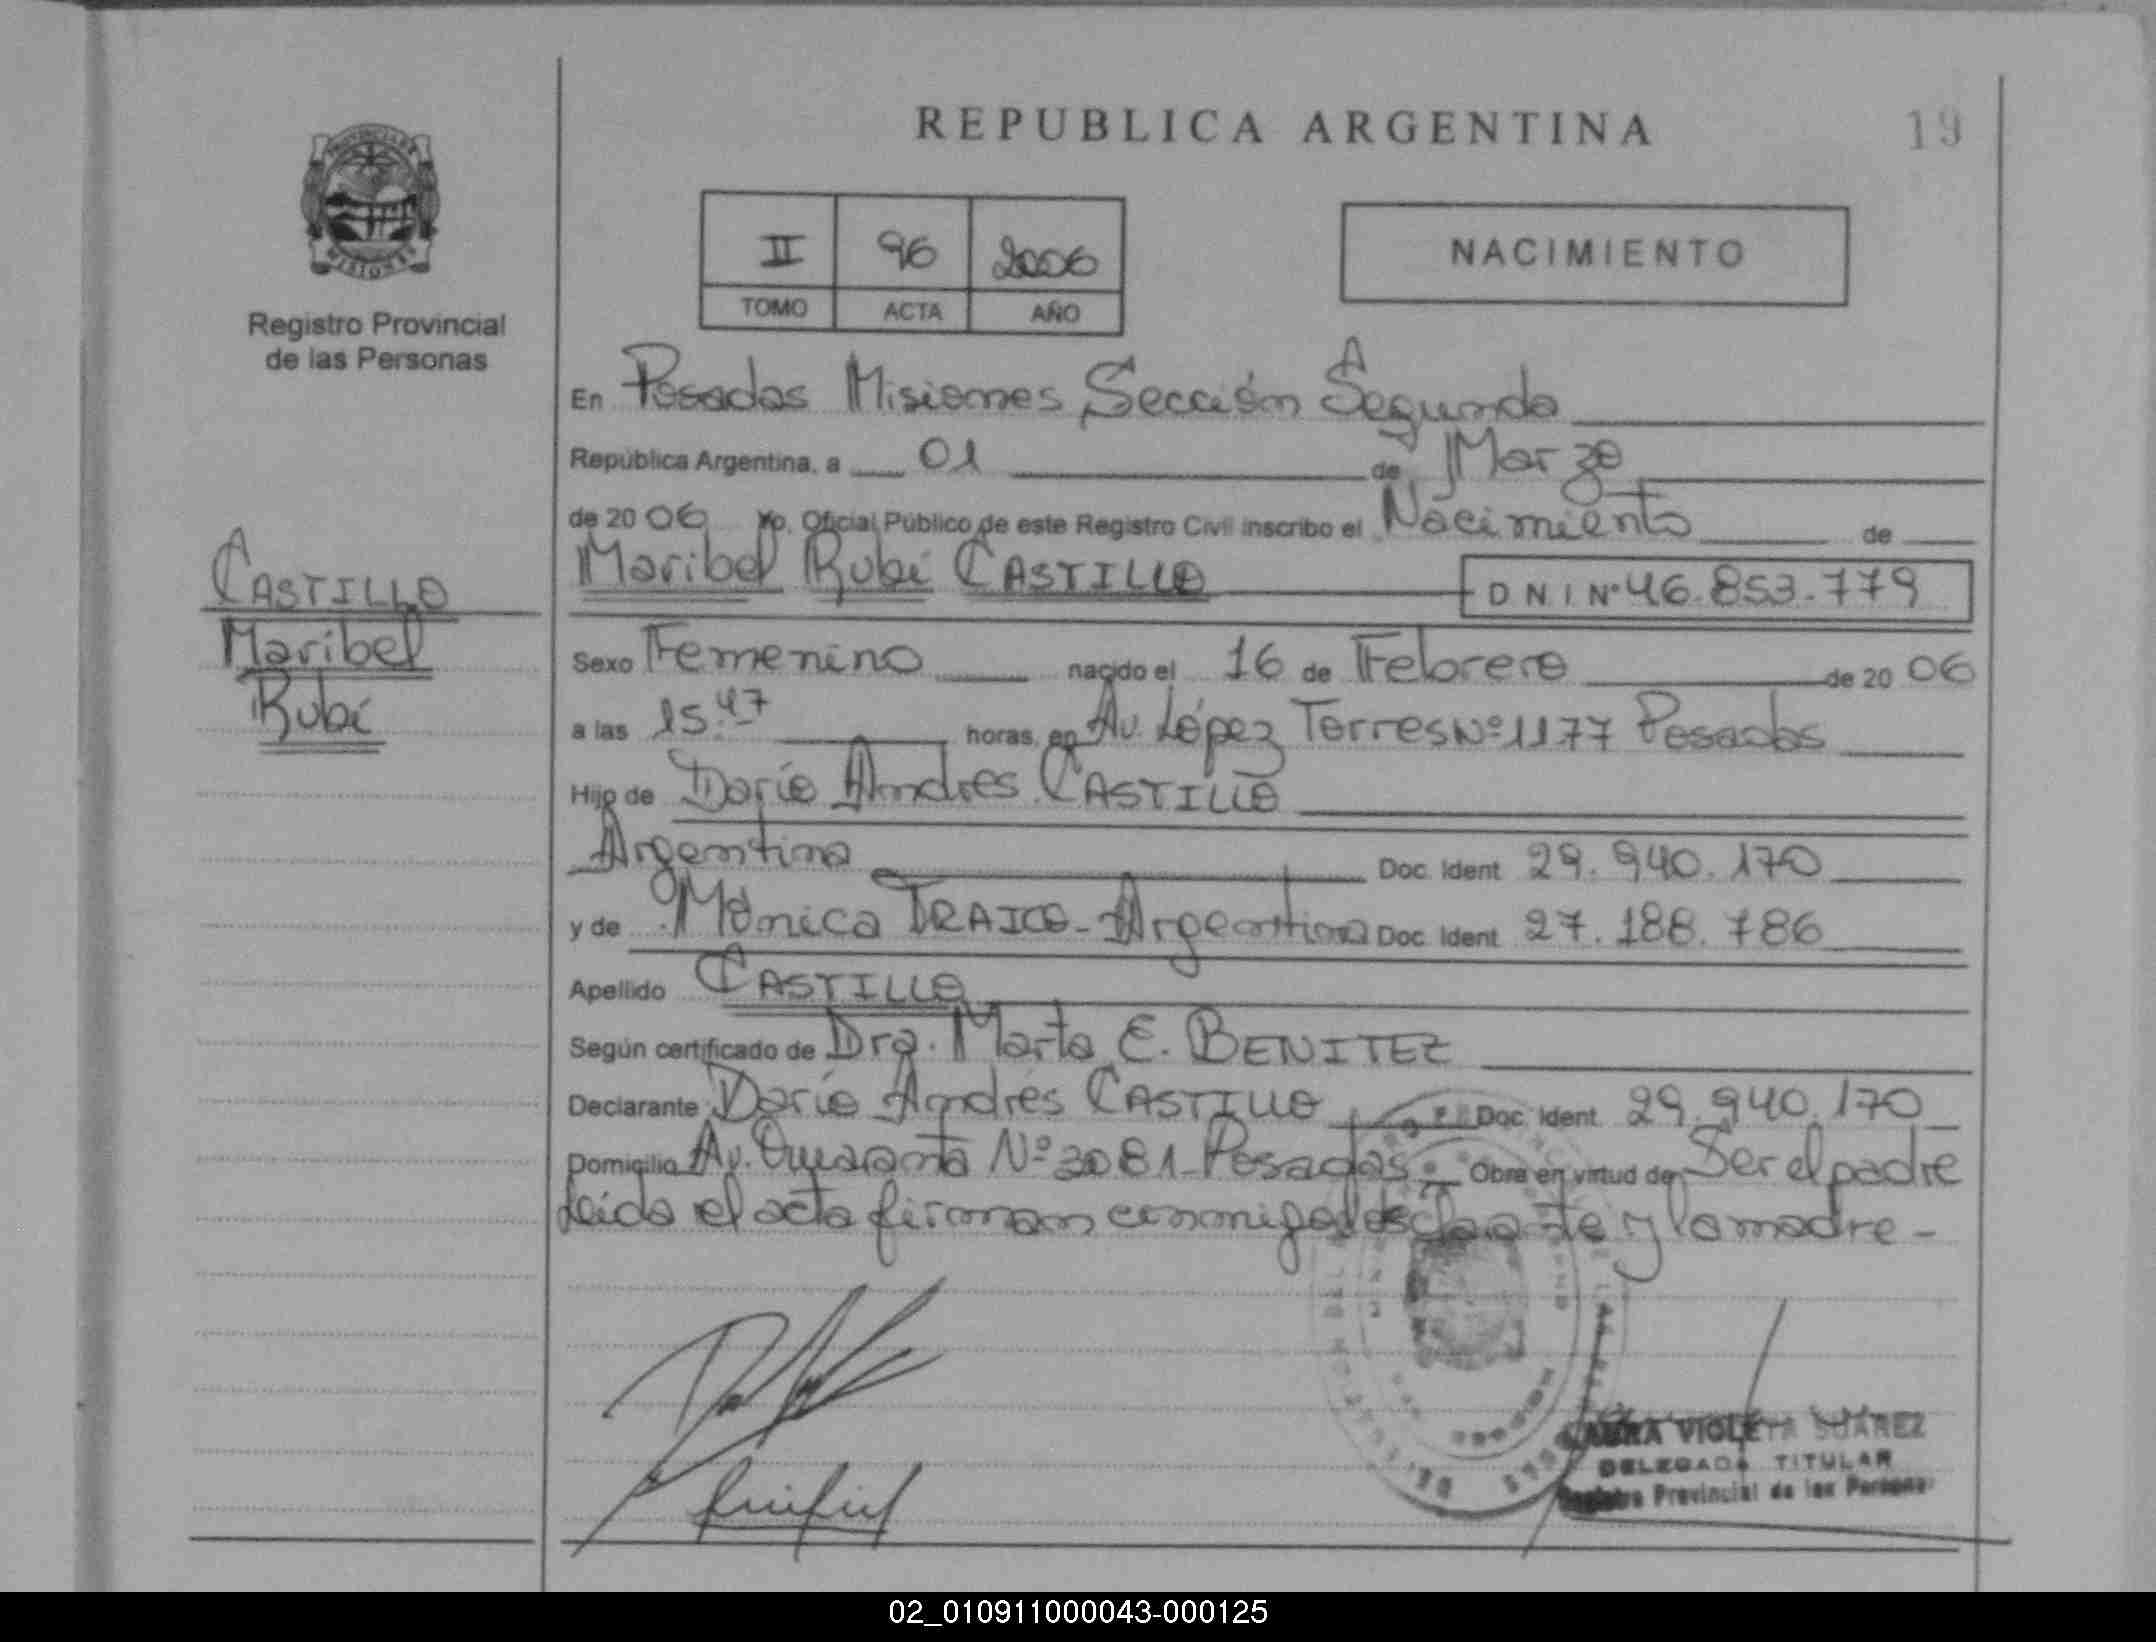 REPUBLICA ARGENTINA
19
PROVINCIA DE
MISIONES
Registro Provincial
de las Personas
II 96 2006
TOMO ACTA AÑO
NACIMIENTO
CASTILLO
Maribel
Rubí
En Posadas Misiones Sección Segunda
República Argentina, a 01 de Marzo
de 2006 Yo, Oficial Público de este Registro Civil inscribo el Nacimiento de
Maribel Rubí CASTILLO DNI Nº 46.853.779
Sexo Femenino nacido el 16 de Febrero de 2006
a las 15:47 horas, en Av. López Torres Nº 1177 Posadas
Hijo de Darío Andrés CASTILLO
Argentina Doc. Ident 29.940.170
y de Mónica TRAICO - Argentina Doc. Ident 27.188.786
Apellido CASTILLO
Según certificado de Dra. Marta E. BENITEZ
Declarante Darío Andrés CASTILLO Doc. Ident. 29.940.170
Domicilio Av. Quaranta Nº 3081 - Posadas Obra en virtud de Ser el padre
Leída el acta firman conmigo y la madre -
LAURA VIOLETA SUAREZ
DELEGADA TITULAR
Registro Provincial de las Personas
02_010911000043-000125